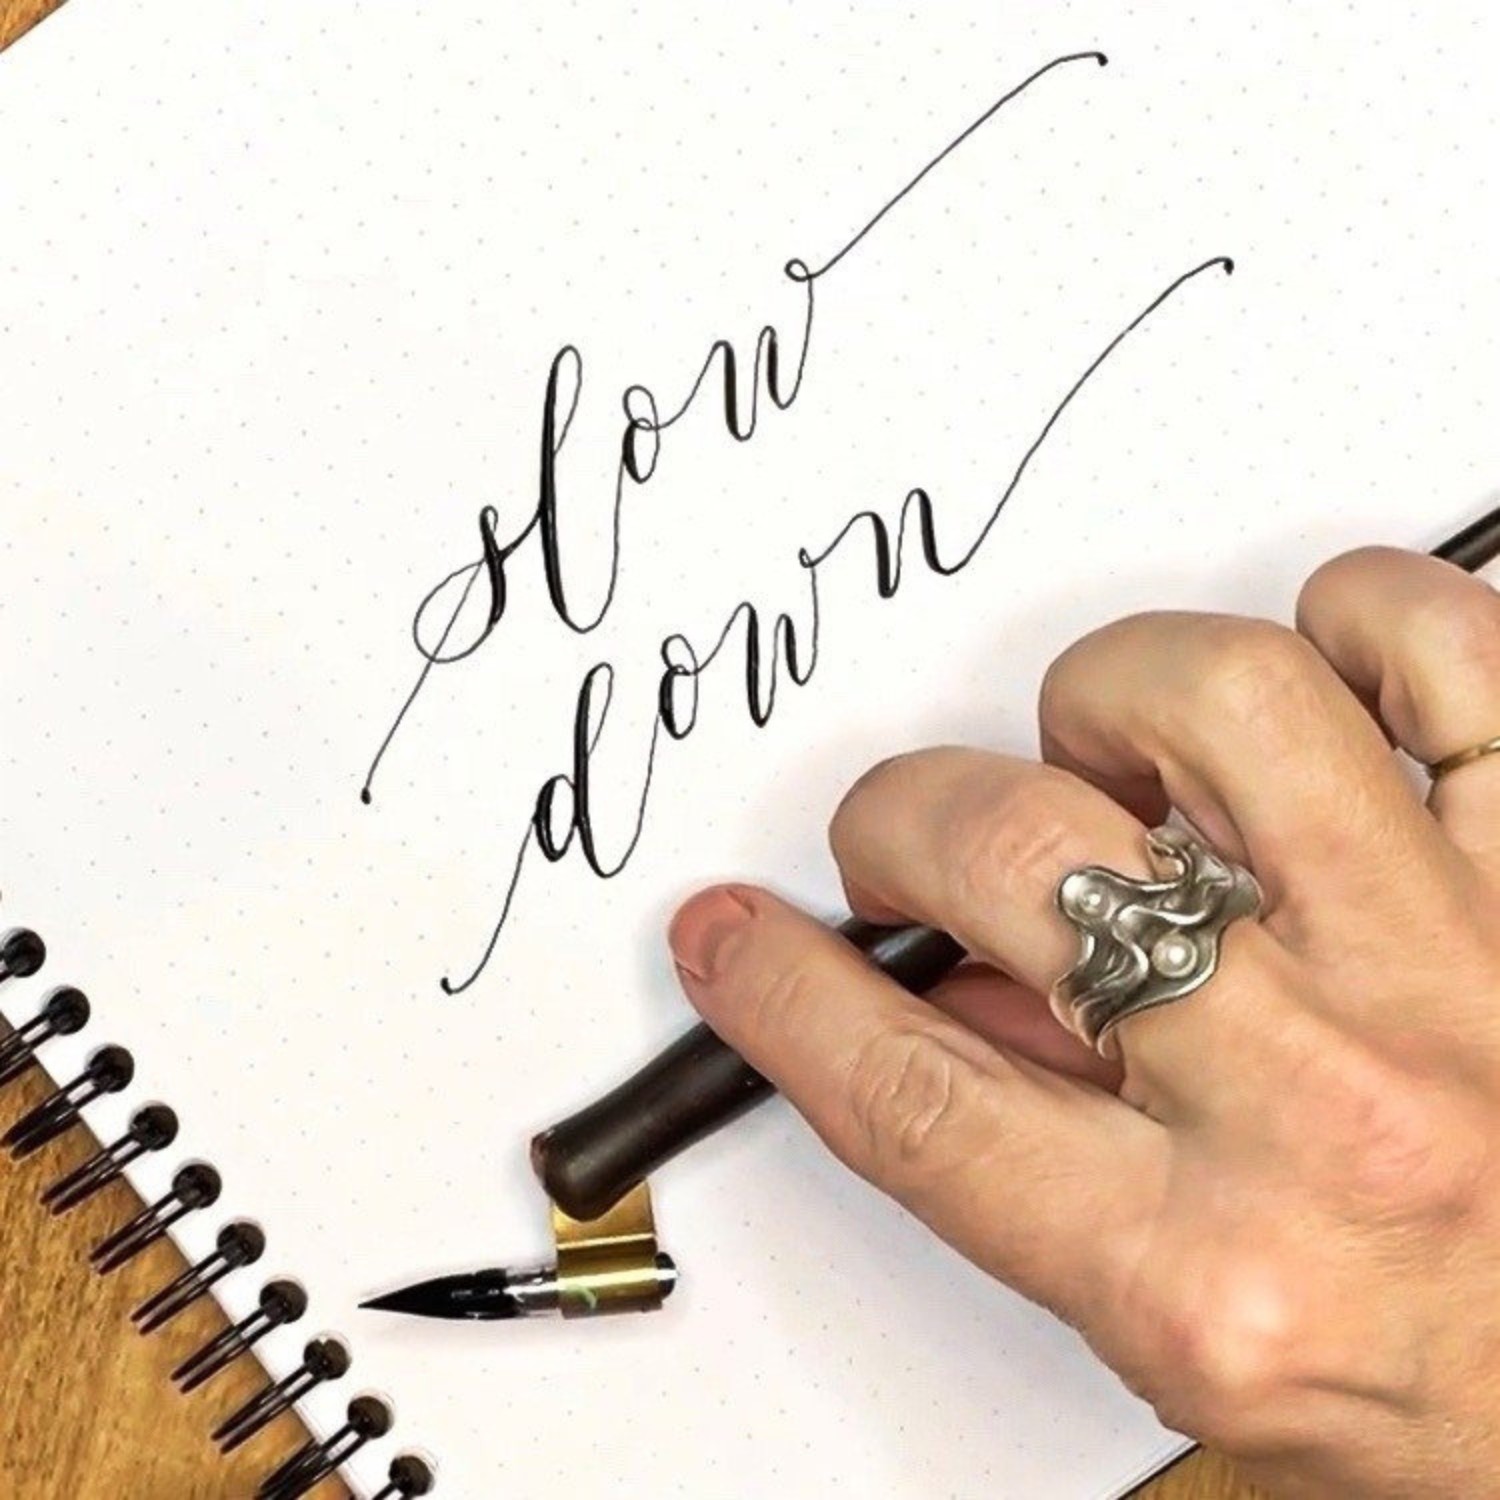 slow
down